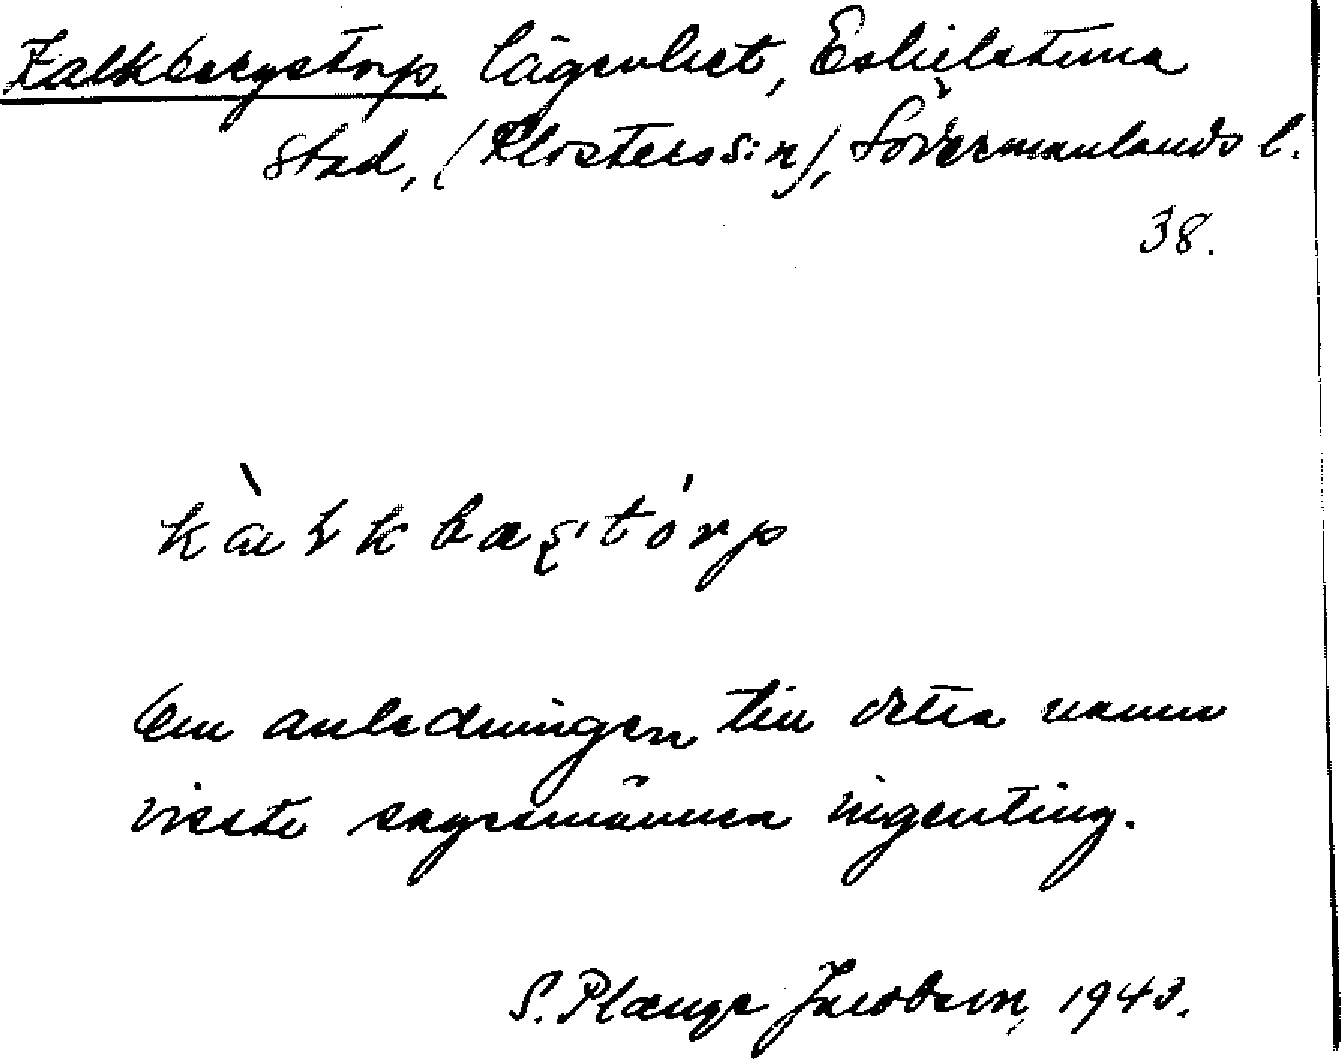 Kalkbergstorp, lägenhet, Eskilstuna
stad, (Klosters s:n), Södermanlands l.
38.
kàlkbaʂtórp
Om anledningen till detta namn
visste sagesmännen ingenting.
S. Plænge Jacobson, 1943.